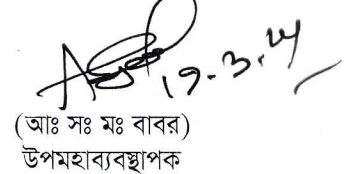 19-3-24
(আঃ সঃ মঃ বাবর)
উপমহাব্যবস্থাপক